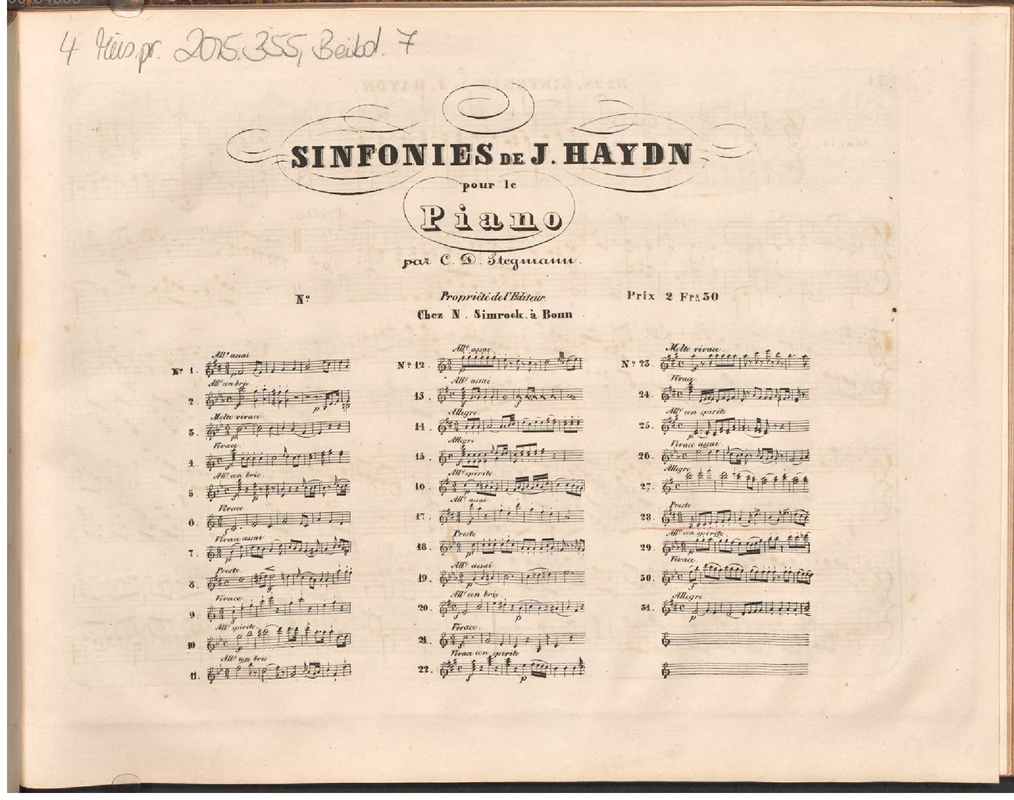 4 Mus.pr. 2015.355, Beibd. 7
SINFONIES DE J. HAYDN
pour le
Piano
par C. D. Stegmann.
Nº
Propriété de l'Editeur
Prix 2 Frs. 50
Chez N. Simrock à Bonn
Allº assai
Nº 1.
Allº con brio
2.
Molto vivace
3.
Vivace
4.
Allº con brio
5.
Vivace
6.
Vivace assai
7.
Presto
8.
Vivace
9.
Allº spirito
10
Allº con brio
11.
Allº assai
Nº 12.
Allº assai
13.
Allegro
14.
Allegro
15.
Allº spirito
16
Allº assai
17.
Presto
18.
Allº assai
19.
Allº con brio
20.
Vivace
21.
Vivace con spirito
22.
Molto vivace
Nº 23.
Vivace
24.
Allº con spirito
25.
Vivace assai
26.
Allegro
27.
Presto
28.
Allº con spirito
29.
Vivace
30.
Allegro
31.